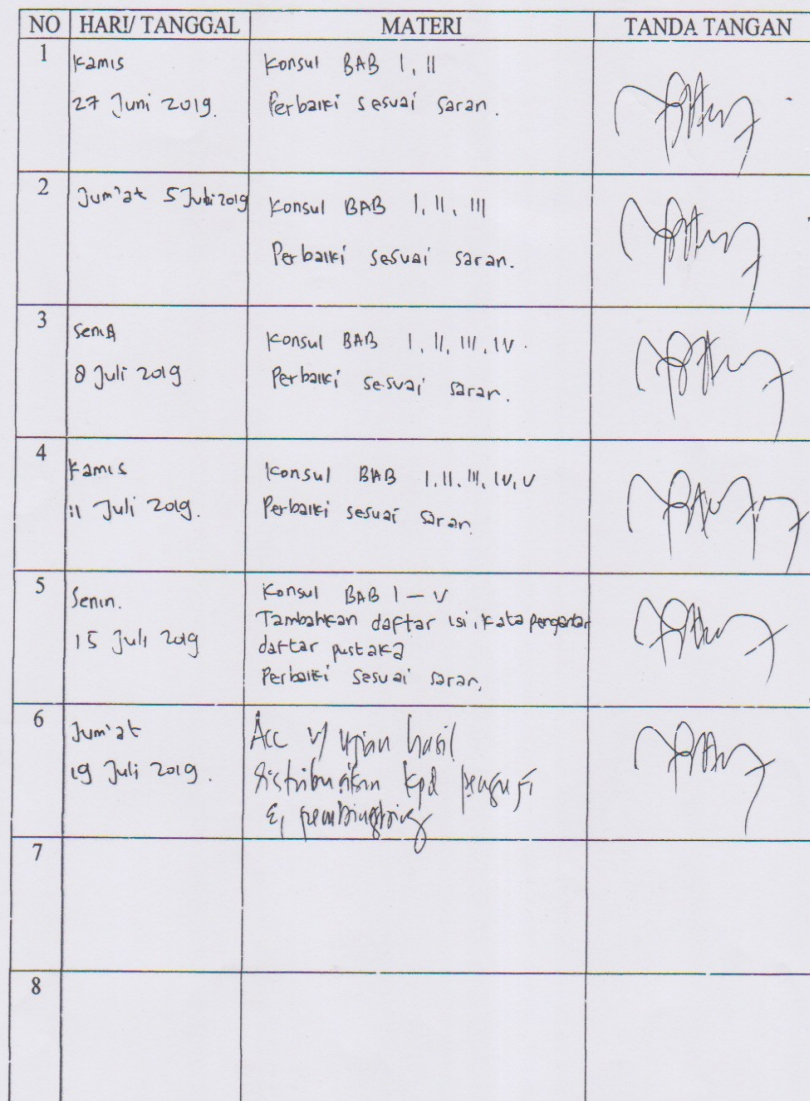 NO HARI/ TANGGAL MATERI TANDA TANGAN
1
Kamis
27 Juni 2019.
Konsul BAB I, II
Perbaiki sesuai saran.
2
Jum'at 5 Juli 2019
Konsul BAB I, II, III
Perbaiki sesuai saran.
3
Senin
8 Juli 2019
Konsul BAB I, II, III, IV.
Perbaiki sesuai saran.
4
Kamis
11 Juli 2019.
Konsul BAB I, II, III, IV, V
Perbaiki sesuai saran.
5
Senin.
15 Juli 2019
Konsul BAB I – V
Tambahkan daftar isi, kata pengantar
daftar pustaka
Perbaiki sesuai saran.
6
Jum'at
19 Juli 2019.
Acc u/ ujian hasil
distribusikan kpd penguji
& pembimbing
7
8